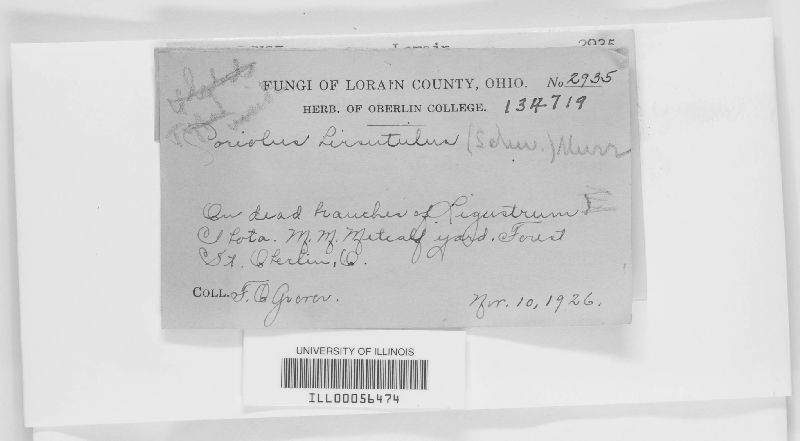 FUNGI OF LORAIN COUNTY, OHIO. No 2935
HERB. OF OBERLIN COLLEGE. 134719
Coriolus hirsutulus (Schw.) Murr
On dead branches of Ligustrum
Ibota. M. M. Metcalf yard. Forest
St. Oberlin, O.
COLL. F. O Grover. Nov. 10, 1926.
UNIVERSITY OF ILLINOIS
ILL00056474